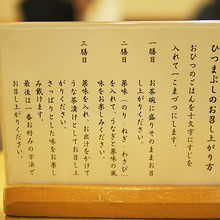 ひつまぶしのお召し上がり方
おひつのごはんを十文字にすじを
入れて一こまづつにします。
一膳目
お茶碗に盛りそのままお召
し上がりください。
二膳目
薬味（のり・ねぎ・わさび）
を入れてのり・ねぎ・薬味の風
味をお楽しみください。
三膳目
薬味を入れ、お出汁をかけて
うな茶漬けとしてお召し上
がりください。
さっぱりとした味をお楽し
み戴けます。
最後は一番お好みの方法で
お召し上がりください。